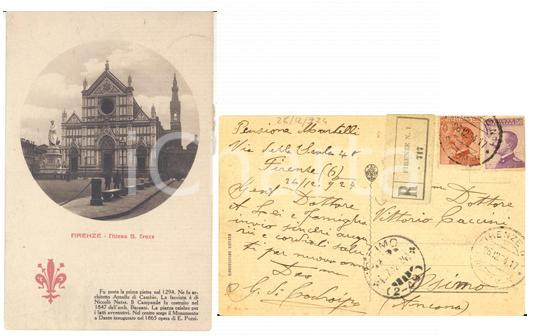 FIRENZE - Chiesa S. Croce
Fu posta la prima pietra nel 1294. Ne fu ar-
chitetto Arnolfo di Cambio. La facciata è di
Niccolò Matas. Il Campanile fu costruito nel
1847 dall'arch. Baccani. La piazza celebre per
i fatti avventivi. Nel centro sorge il Monumento
a Dante inaugurato nel 1865 opera di E. Pazzi.
26/12/924
Pensione Martelli
Via della Scala 40
Firenze (6)
26/12.924
Dottore
A Lei e famiglia
invio sinceri augu
ri e cordiali salu
ti pel nuovo anno
R
FIRENZE N. 1
717
Dottore
Vittorio
Osimo
(Ancona)
FIRENZE
OSIMO